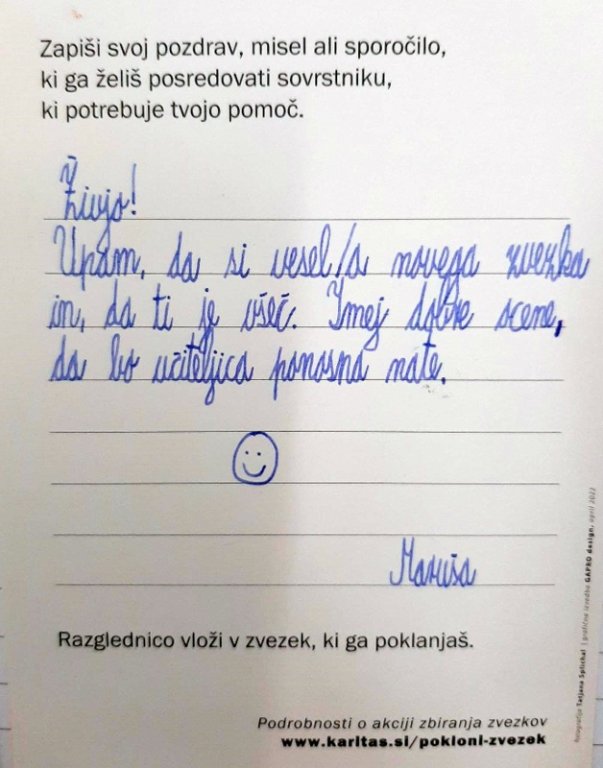 Zapiši svoj pozdrav, misel ali sporočilo,
ki ga želiš posredovati sovrstniku,
ki potrebuje tvojo pomoč.
Živjo!
Upam, da si vesel/a novega zvezka
in, da ti je všeč. Imej dobre ocene,
da bo učiteljica ponosna nate.
Maruša
Razglednico vloži v zvezek, ki ga poklanjaš.
Podrobnosti o akciji zbiranja zvezkov
www.karitas.si/pokloni-zvezek
fotografija Tatjana Splichal | grafična izvedba GAPRO design, april 2022